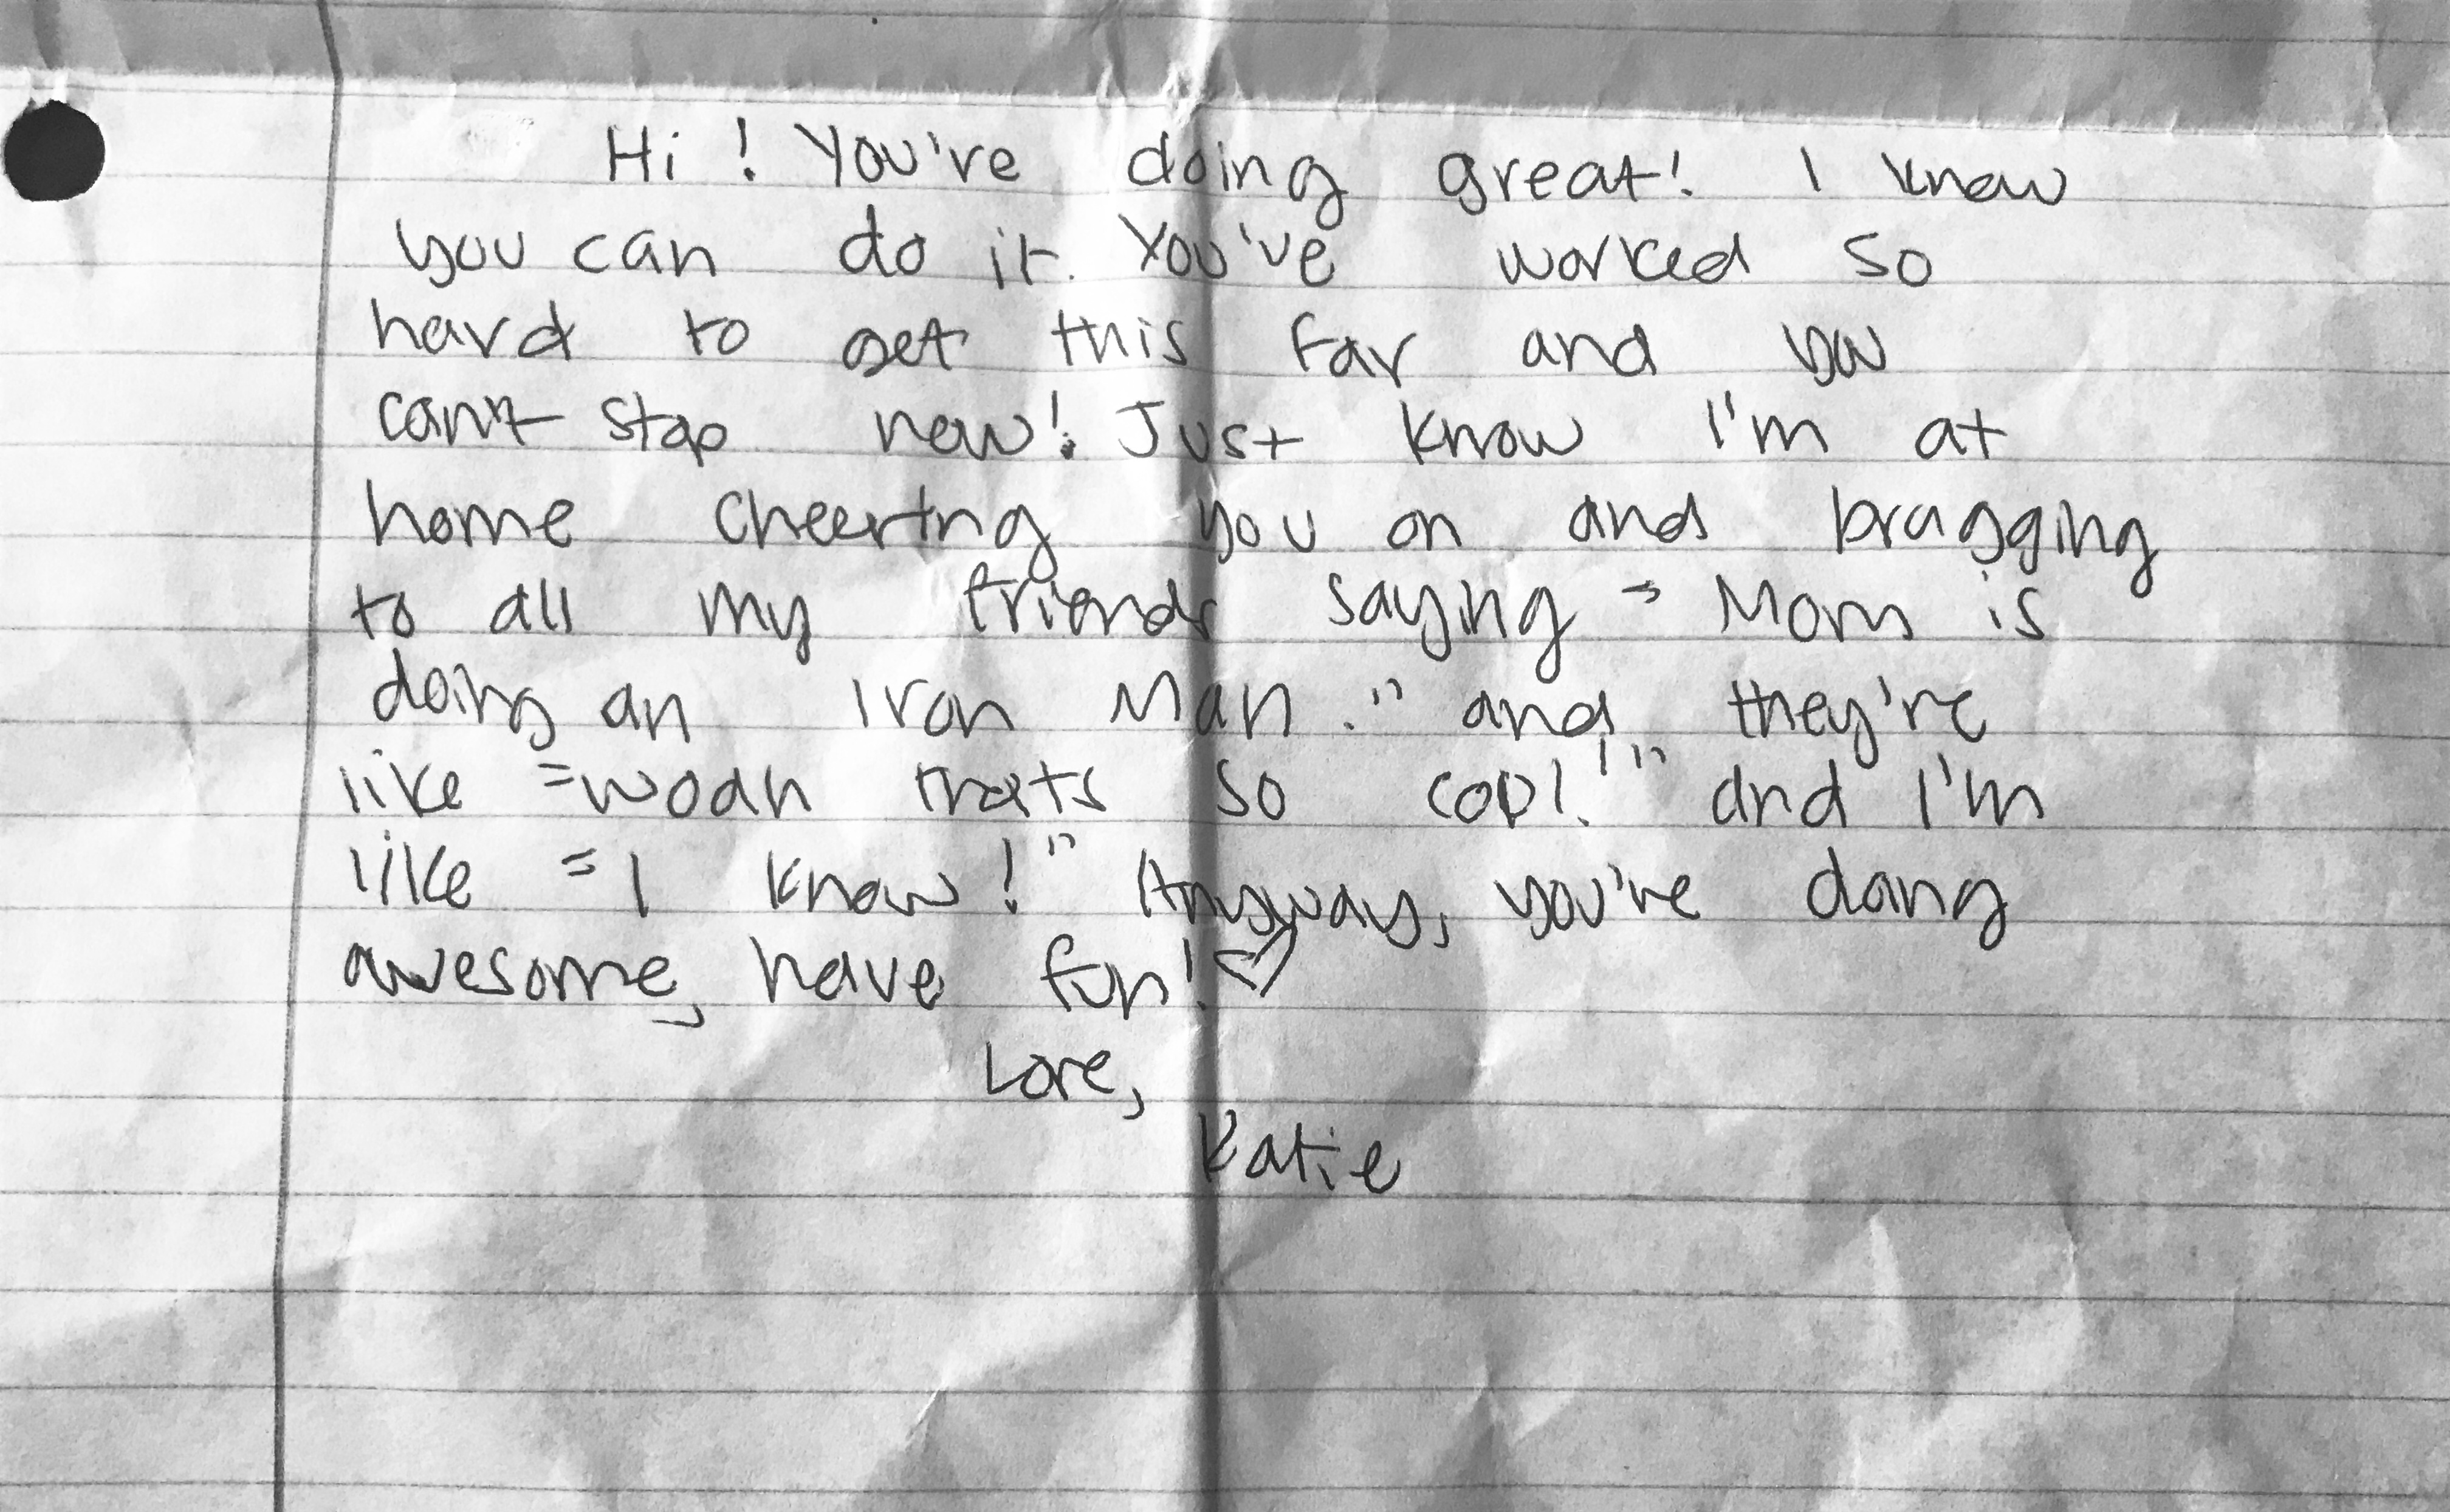 Hi! You're doing great! I know
you can do it. You've worked so
hard to get this far and you
can't stop now! Just know I'm at
home cheering you on and bragging
to all my friends saying "Mom is
doing an Iron Man." and they're
like "woah thats so cool!" and I'm
like "I know!" Anyway, you're doing
awesome, have fun! ♡
Love,
Katie